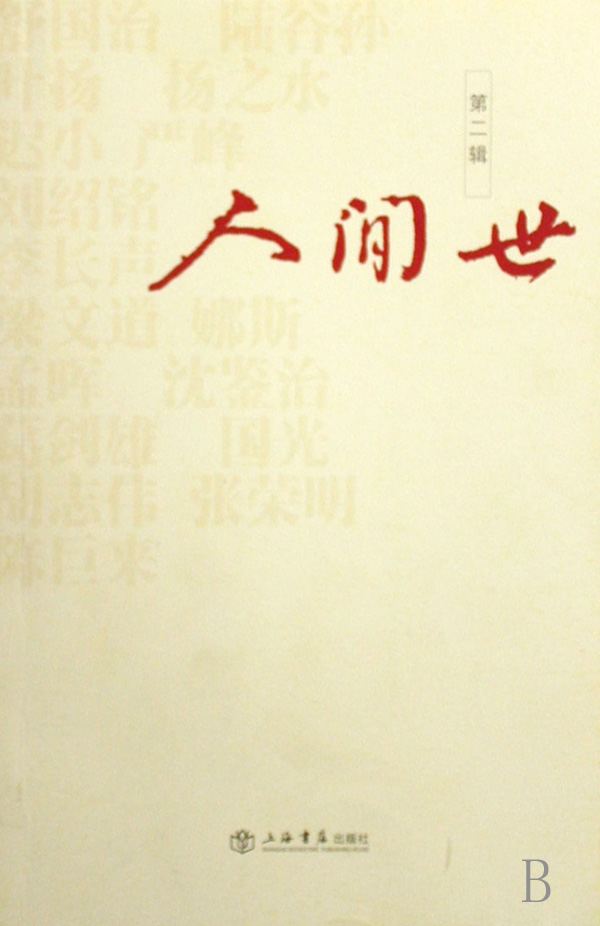 舒国治 陆谷孙
叶扬 扬之水
迟小 严峰
刘绍铭
李长声
梁文道 娜斯
孟晖 沈鉴治
葛剑雄 国光
胡志伟 张荣明
陈巨来
第二辑
人间世
上海书店出版社
B